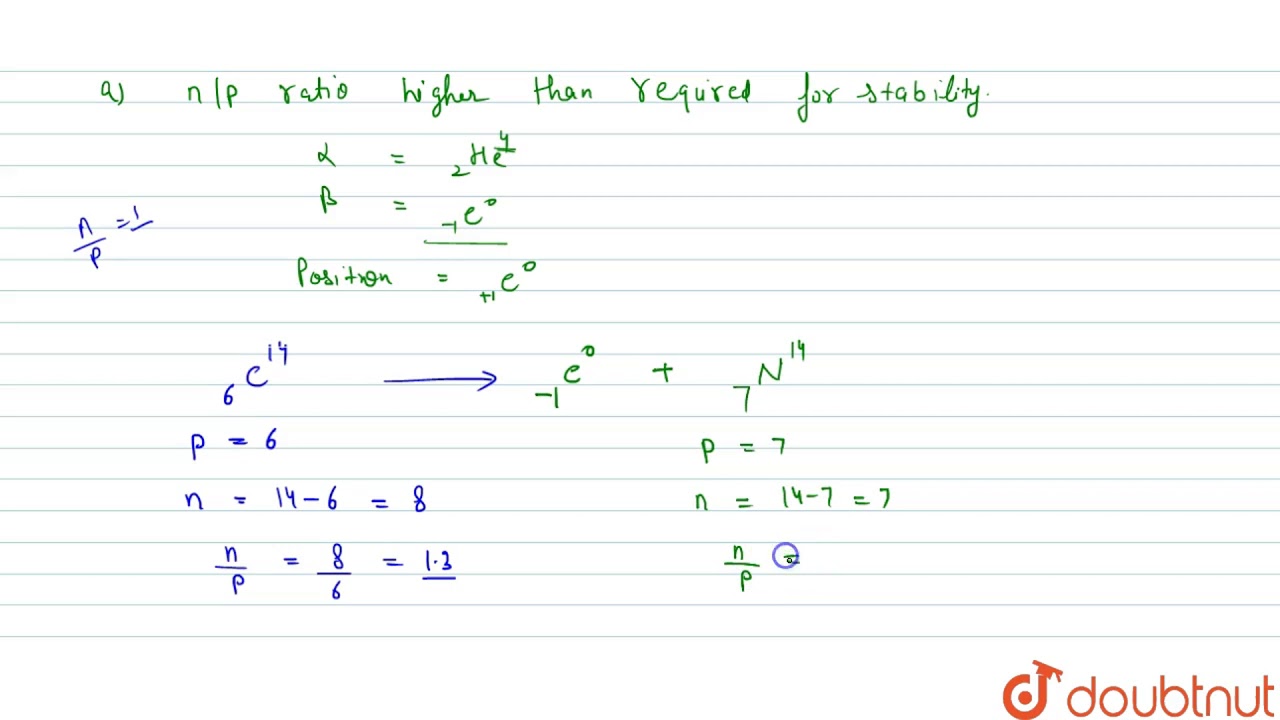 a) n/p ratio higher than required for stability.
α = ₂He⁴
β = ₋₁e⁰
n/p = 1
Positron = ₊₁e⁰
₆C¹⁴ ⟶ ₋₁e⁰ + ₇N¹⁴
p = 6 p = 7
n = 14 - 6 = 8 n = 14 - 7 = 7
n/p = 8/6 = 1.3 n/p =
doubtnut